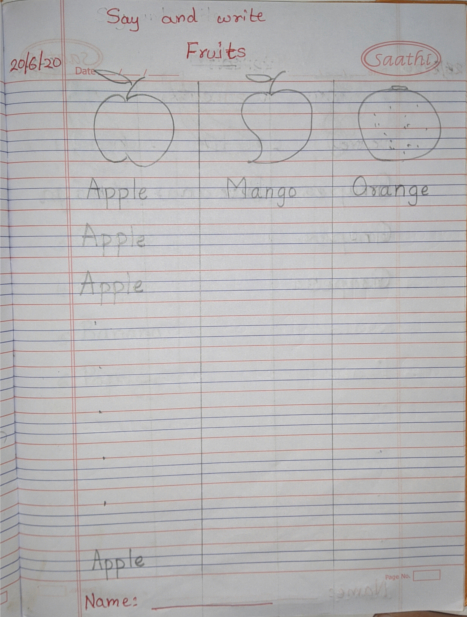 Say and write
Fruits
20/6/20
Date
Saathi
Apple Mango Orange
Apple
Apple
Apple
Page No.
Name: